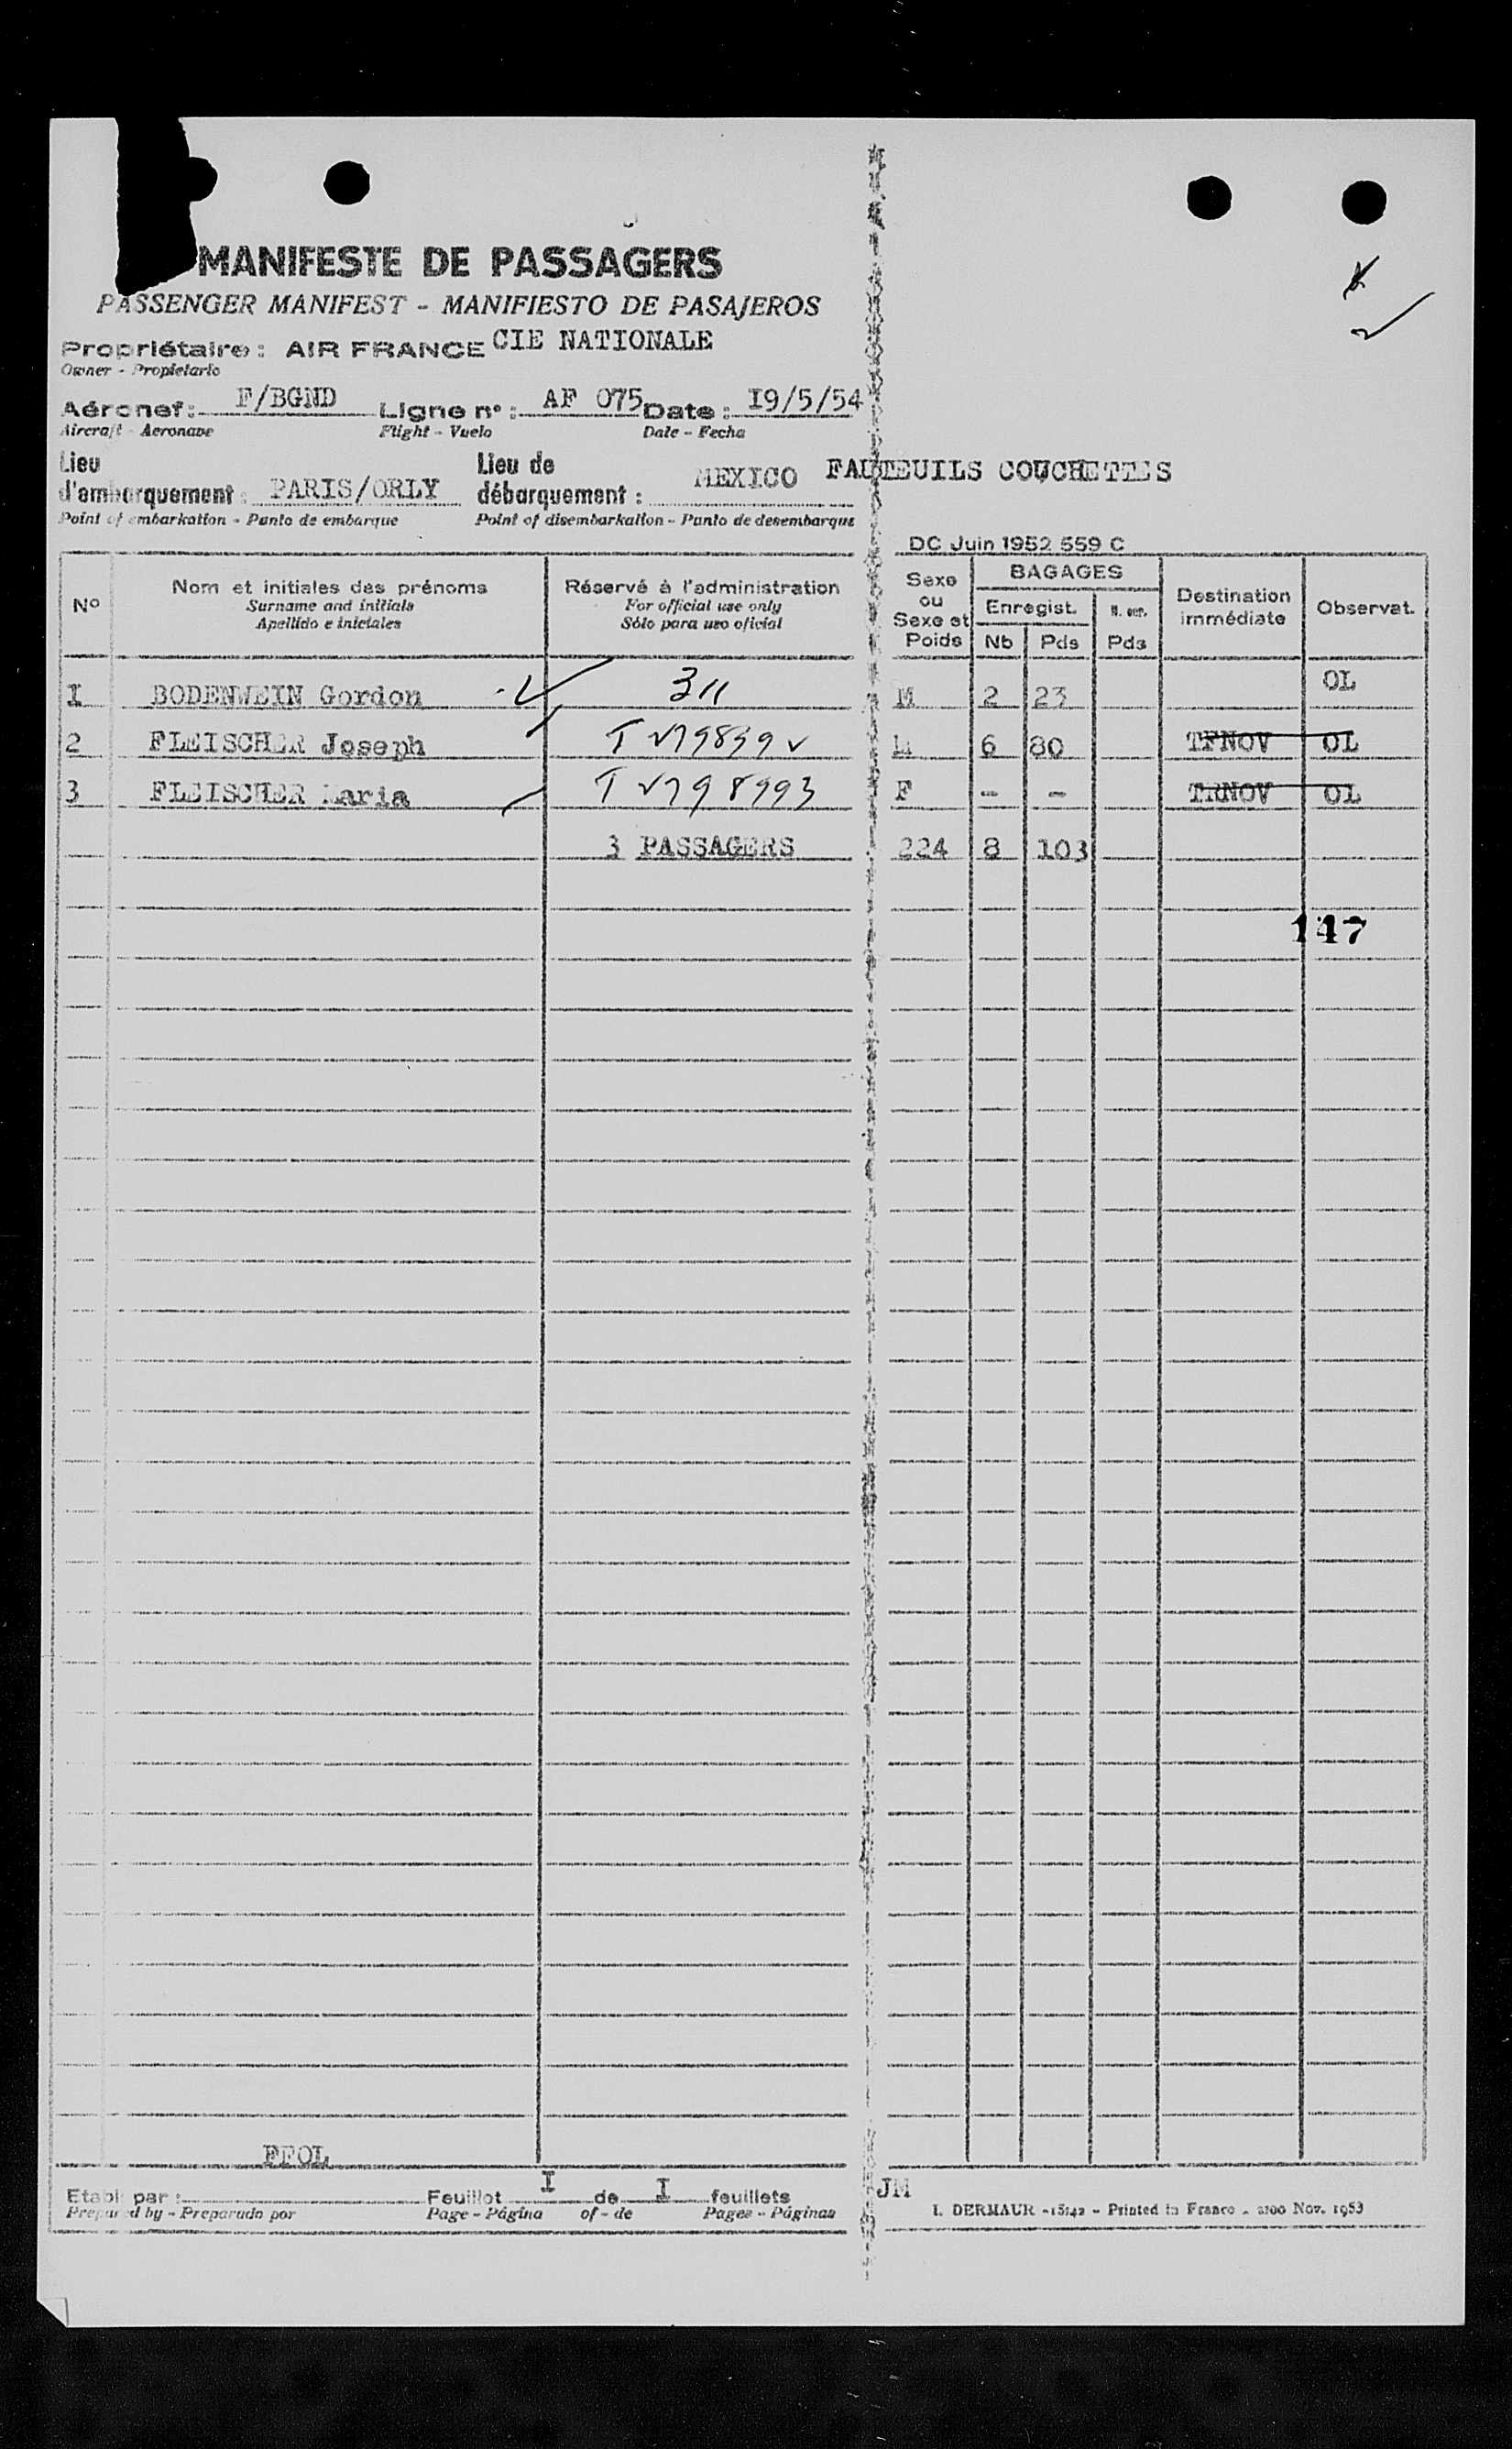 MANIFESTE DE PASSAGERS
PASSENGER MANIFEST - MANIFIESTO DE PASAJEROS
Propriétaire : AIR FRANCE CIE NATIONALE
Owner - Propietario
Aéronef : F/BGND Ligne n° : AF 075 Date : I9/5/54
Aircraft - Aeronave Flight - Vuelo Date - Fecha
Lieu d'embarquement : PARIS/ORLY Lieu de débarquement : MEXICO FAUTEUILS COUCHETTES
Point of embarkation - Punto de embarque Point of disembarkation - Punto de desembarque
DC Juin 1952 559 C
N° Nom et initiales des prénoms Réservé à l'administration Sexe ou Sexe et Poids BAGAGES Destination immédiate Observat.
Surname and initials For official use only Enregist.
Apellido e iniciales Sólo para uso oficial Nb Pds Pds
I BODENWEIN Gordon 311 M 2 23 OL
2 FLEISCHER Joseph M 6 80 TFNOV OL
3 FLEISCHER Maria F - - TRNOV OL
3 PASSAGERS 224 8 103
147
FFOL
Etabli par : Feuillet I de I feuillets JM
Prepared by - Preparado por Page - Página of - de Pages - Páginas
I. DERMAUR - 15142 - Printed in France - 2100 Nov. 1953